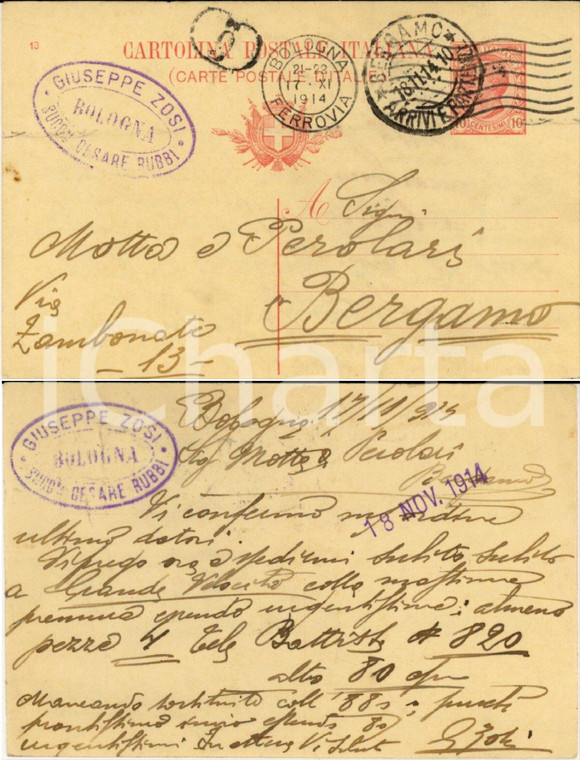 13
CARTOLINA POSTALE ITALIANA
(CARTE POSTALE D'ITALIE)
GIUSEPPE ZOSI
BOLOGNA
SUCC. CESARE RUBBI
BOLOGNA
21-22
17·XI
1914
FERROVIA
BERGAMO
18.11.14.10
ARRIVI E PARTENZE
10 CENTESIMI 10
A Sigri
Motta e Perolari
Via
Bergamo
Zambonate
- 13 -
iCharta
GIUSEPPE ZOSI
BOLOGNA
SUCC. CESARE RUBBI
Bologna 17/11/914
Sig Motta e Perolari
Bergamo
18 NOV. 1914
Vi confermo mia
ultimo datovi.
Vi prego ora a spedirmi subito, subito
a Grande Velocità colla massima
premura essendo urgentissima: almeno
pezze 4 Tela Battista # 820
alto 80 cm
Mancando sostituite coll '88
prontissimo invio essendo
urgentissimi In attesa Vi saluto
G Zosi